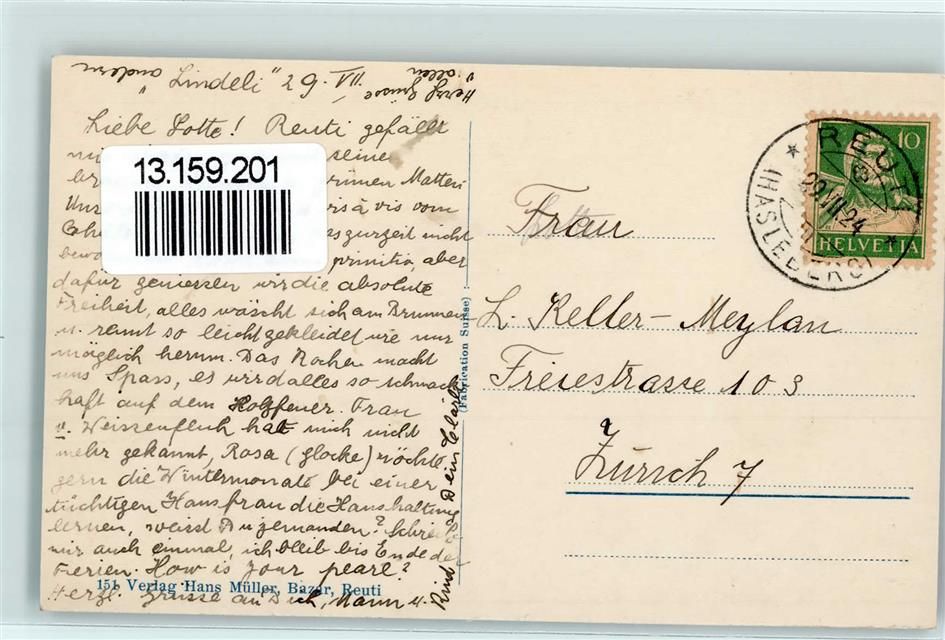 „Lindeli" 29. VII.
Herzl Grüsse
v. allen
andern
Liebe Lotte! Reuti gefällt
seine
grünen Matten
Uns vis à vis vom
es zurzeit nicht
bewo primitiv, aber
dafür geniessen wir die absolute
Freiheit, alles wäscht sich am Brunnen
u. rannt so leichtgekleidet wie nur
möglich herum. Das Kochen macht
uns Spass, es wird alles so schmack
haft auf dem Holzfeuer. Frau
v. Weissenfluh hat mich nicht
mehr gekannt, Rosa (Glocke) möchte
gern die Wintermonate bei einer
tüchtigen Hausfrau die Haushaltung
lernen, weisst Du jemanden? Schreib
mir auch einmal, ich bleib bis Ende der
Ferien. How is your pearl?
Herzl. Grüsse an Dich, Mann u.
Kind Dein Clärli
151 Verlag Hans Müller, Bazar, Reuti
(Fabrication Suisse)
13.159.201
Frau
L. Keller-Meylan
Freiestrasse 103
Zürich 7
10
HELVETIA
REUTI
29.VII.24
(HASLEBERG)